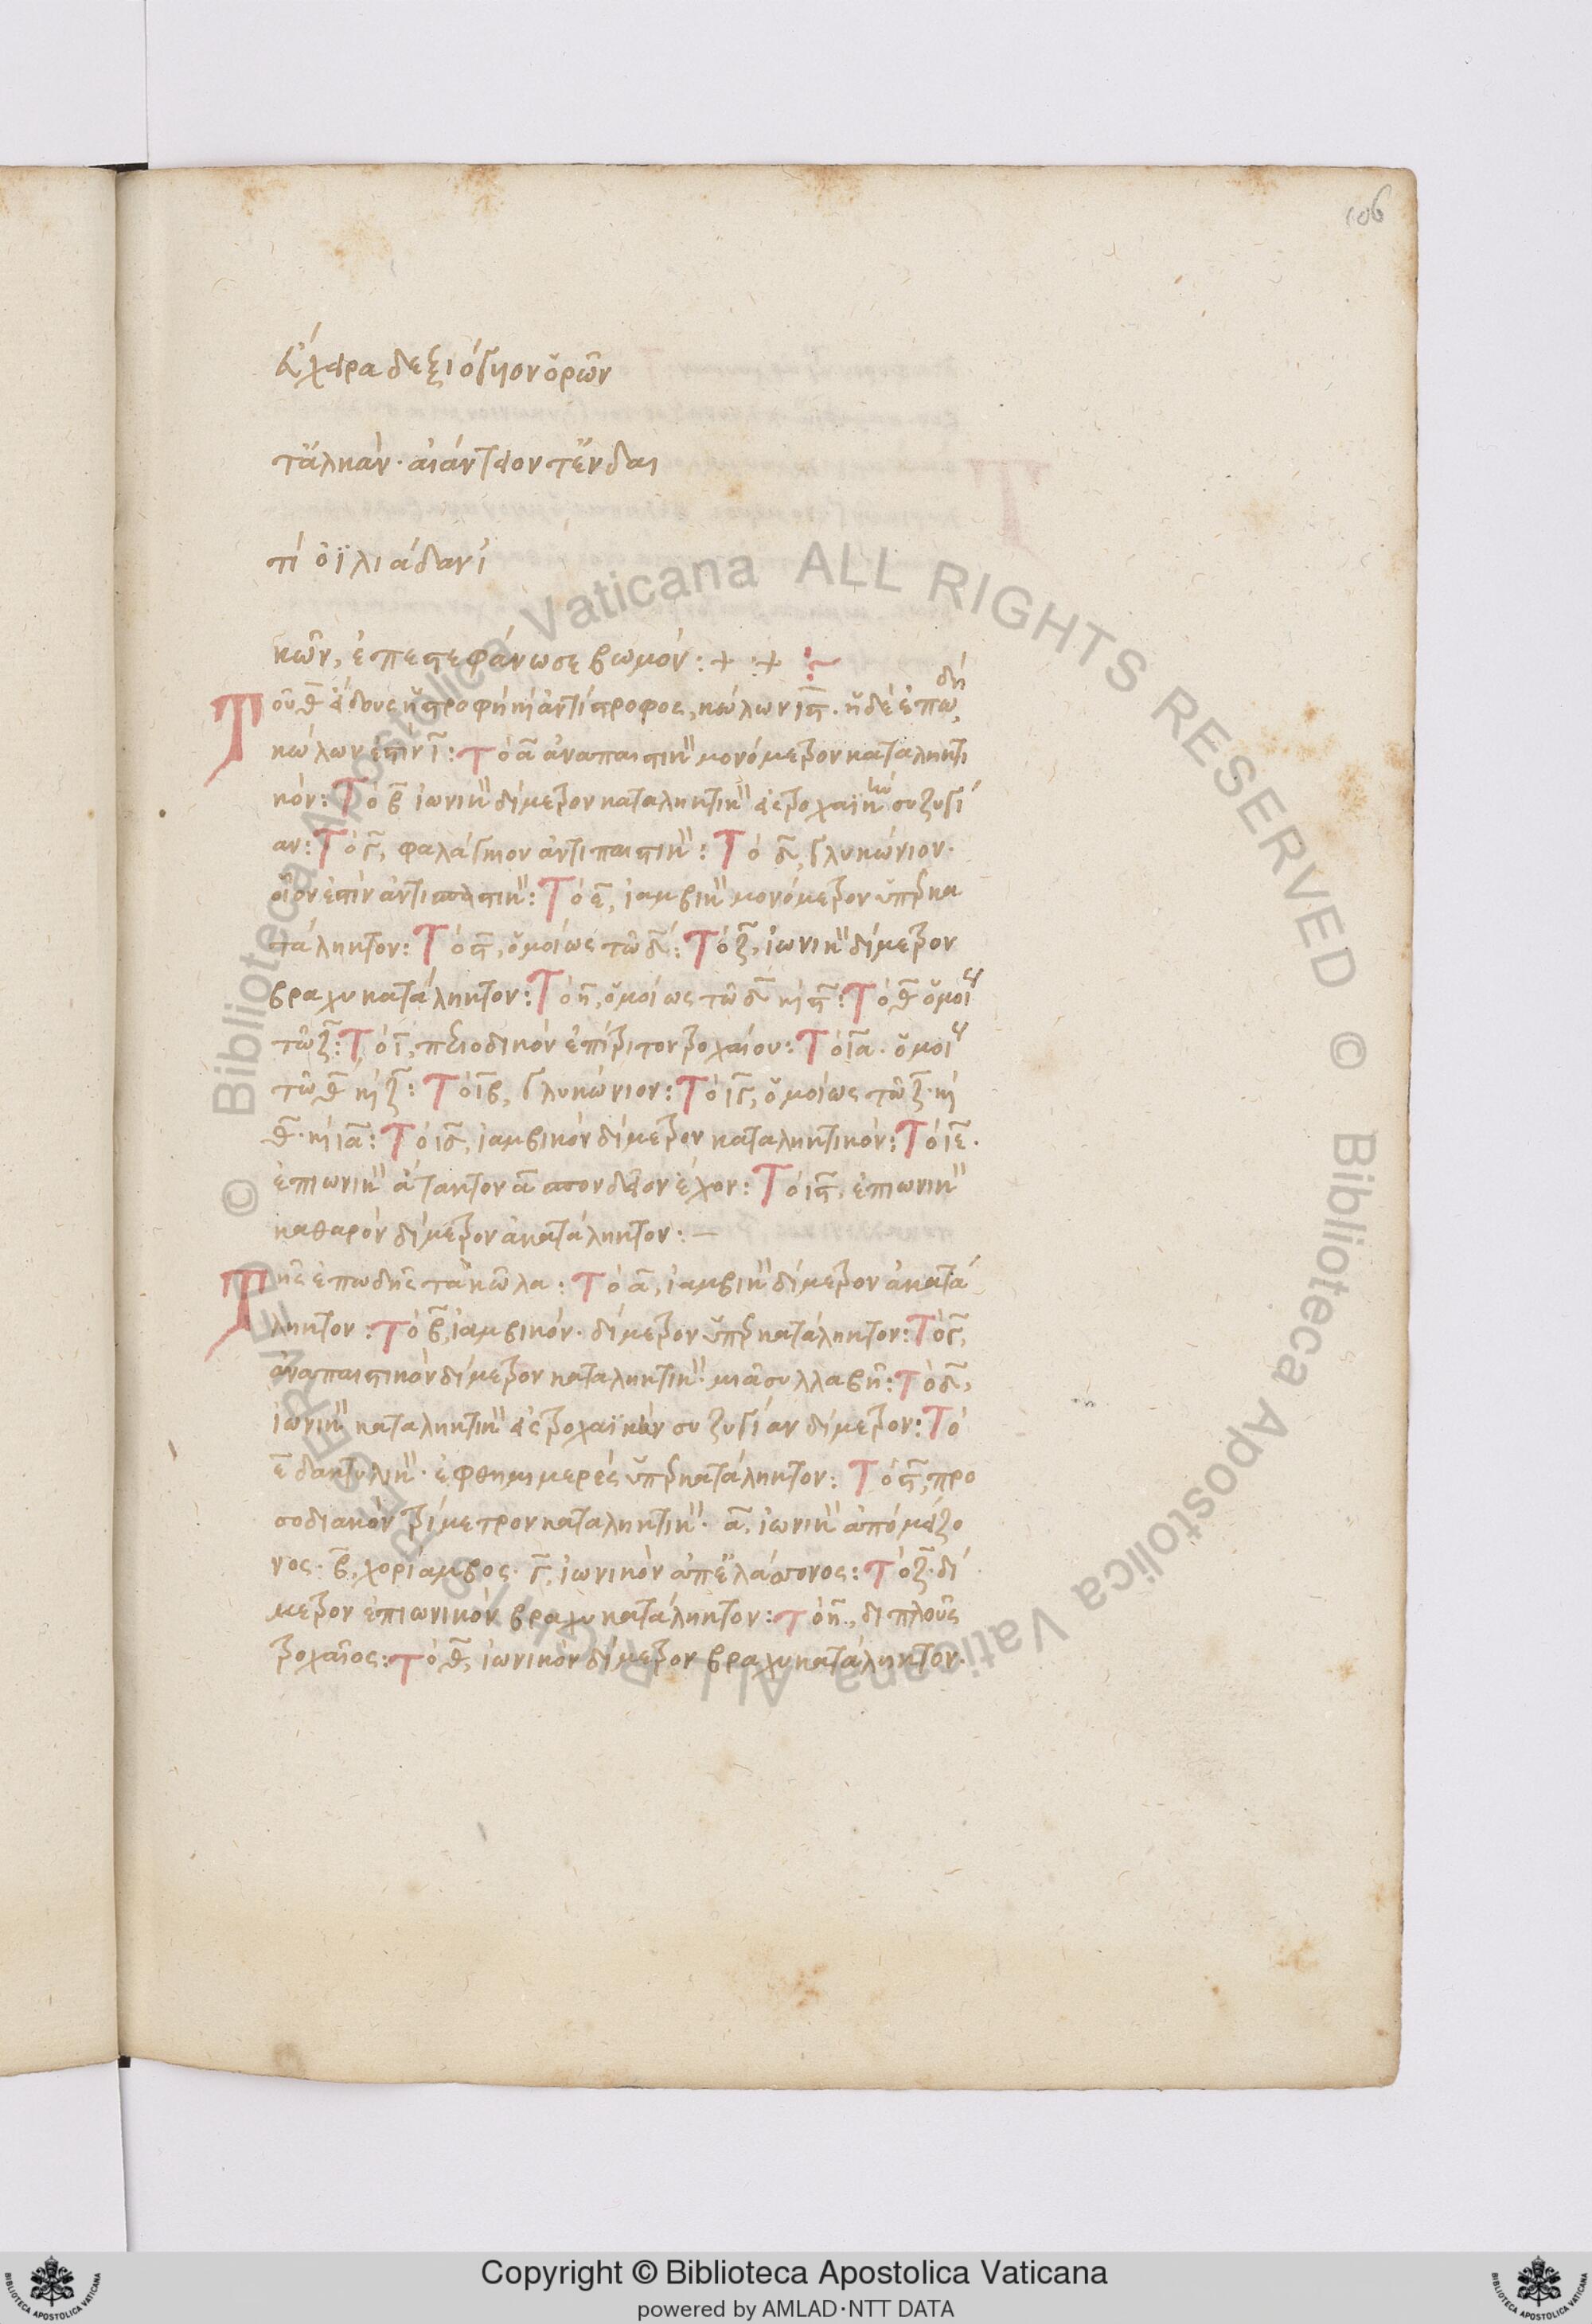 106
εὔχειρα δεξιόγυιον ὁρῶν
τ᾽ ἀλκάν. αἰάντειόν τ᾽ ἐν δαι
τὶ ὀϊλιάδα νι
κῶν, ἐπεστεφάνωσε βωμόν:+ :+ :~
Τοῦ θ̅ εἴδους ἡ στροφὴ κὶ ἀντίστροφος, κώλων ις̅. ἡ δὲ ἐπωδὴ,
κώλων ἐστὶν ι̅: Τὸ α̅ ἀναπαιστικὸν μονόμετρον καταληκτι
κόν: Τὸ β̅ ἰωνικὸν δίμετρον καταληκτικὸν εἰς τροχαϊκὴν συζυγί
αν: Τὸ γ̅, φαλάγγιον ἀντισπαστικὸν: Τὸ δ̅, γλυκώνιον.
οἷον ἐστὶν ἀντισπαστικὸν: Τὸ ε̅, ἰαμβικὸν μονόμετρον ὑπερκα
τάληκτον: Τὸ ς̅, ὁμοίως τῶ δ̅: Τὸ ζ̅, ἰωνικὸν δίμετρον
βραχυκατάληκτον: Τὸ η̅, ὁμοίως τῶ δ̅ κὶ ς̅: Τὸ θ̅ ὁμοίως
τῶ ζ̅: Τὸ ι̅, περιοδικὸν ἐπίτριτον τροχαίου: Τὸ ια̅. ὁμοίως
τῶ θ̅ κὶ ζ̅: Τὸ ιβ̅, γλυκώνιον: Τὸ ιγ̅, ὁμοίως τῶ ζ̅. κὶ
θ̅. κὶ ια̅: Τὸ ιδ̅, ἰαμβικὸν δίμετρον καταληκτικόν: Τὸ ιε̅.
ἐπιωνικὸν ἄτακτον α̅ σπονδεῖον ἔχον: Τὸ ις̅, ἐπιωνικὸν
καθαρὸν δίμετρον ἀκατάληκτον:—
Τῆς ἐπωδῆς τὰ κῶλα: Τὸ α̅, ἰαμβικὸν δίμετρον ἀκατά
ληκτον: Τὸ β̅, ἰαμβικόν. δίμετρον ὑπερκατάληκτον: Τὸ γ̅,
ἀναπαιστικὸν δίμετρον καταληκτικὸν. μιᾶ συλλαβῆ: Τὸ δ̅,
ἰωνικὸν καταληκτικὸν εἰς τροχαϊκὴν συζυγίαν δίμετρον: Τὸ
ε̅ δακτυλικὸν. ἐφθημιμερὲς ὑπερκατάληκτον: Τὸ ς̅, προ
σοδιακὸν τρίμετρον καταληκτικὸν. α̅, ἰωνικὸν ἀπὸ μείζο
νος. β̅, χορίαμβος. γ̅, ἰωνικὸν ἀπ᾽ ἐλάσσονος: Τὸ ζ̅. δί
μετρον ἐπιωνικὸν βραχυκατάληκτον: Τὸ η̅., διπλοῦς
τροχαῖος: Τὸ θ̅, ἰωνικὸν δίμετρον βραχυκατάληκτον.
© Biblioteca Apostolica Vaticana ALL RIGHTS RESERVED © Biblioteca Apostolica Vaticana ALL RIGHTS RESERVED
Copyright © Biblioteca Apostolica Vaticana
powered by AMLAD·NTT DATA
BIBLIOTECA APOSTOLICA VATICANA
BIBLIOTECA APOSTOLICA VATICANA